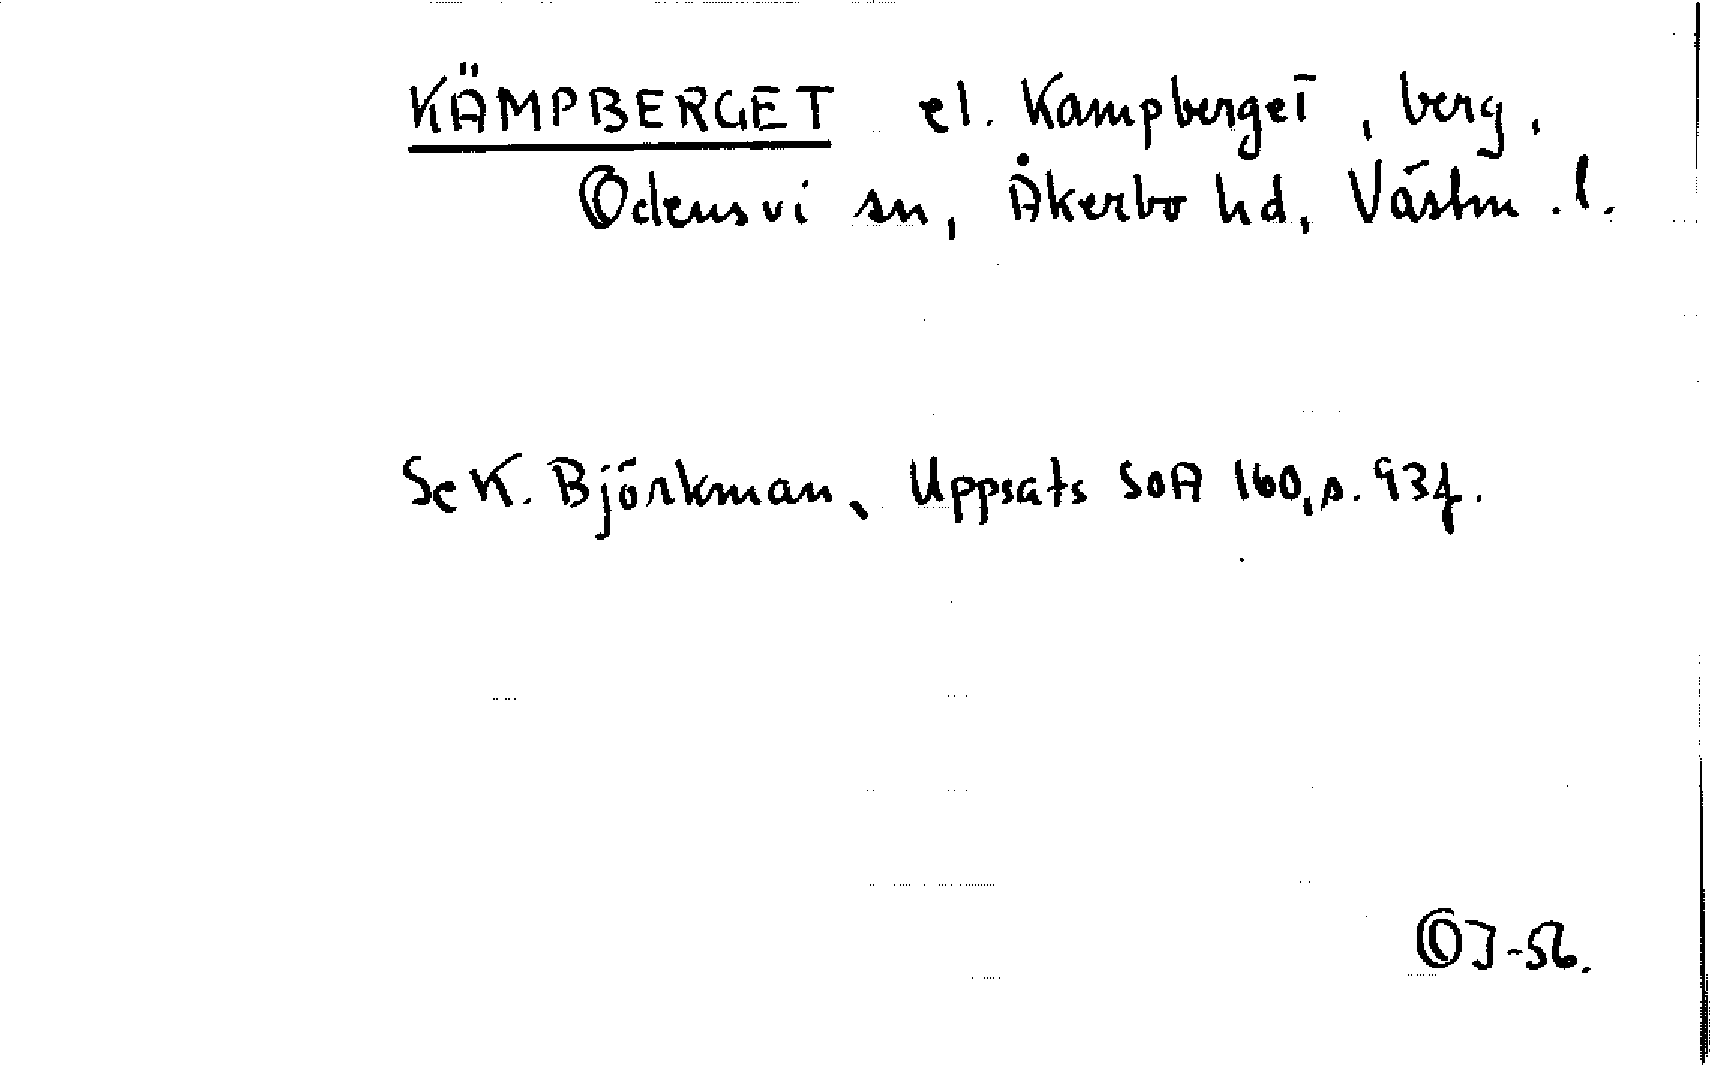 KÄMPBERGET el. Kampberget, berg,
Odensvi sn, Åkerbo hd, Västm. l.
Se K. Björkman, Uppsats SOA 160, s. 93f.
OJ-56.